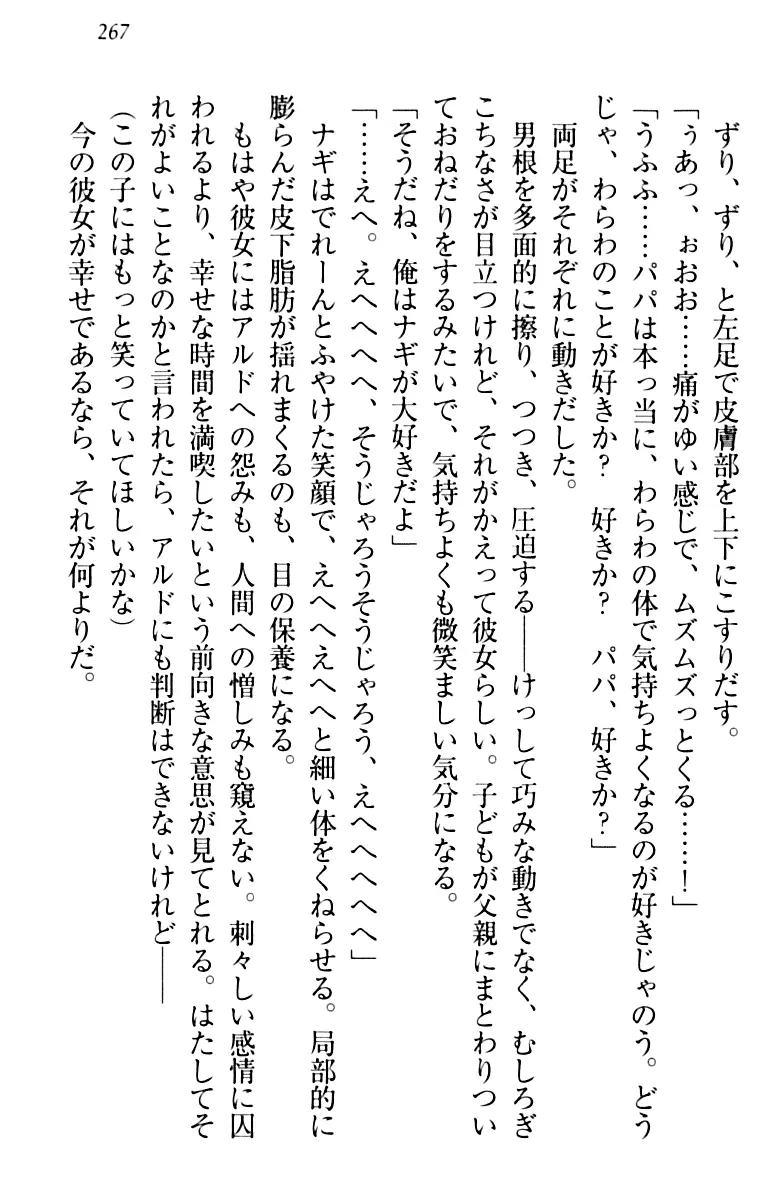 267
ずり、ずり、と左足で皮膚部を上下にこすりだす。
「ぅあっ、ぉおお……痛がゆい感じで、ムズムズっとくる……！」
「うふふ……パパは本っ当に、わらわの体で気持ちよくなるのが好きじゃのう。どう
じゃ、わらわのことが好きか？　好きか？　パパ、好きか？」
両足がそれぞれに動きだした。
男根を多面的に擦り、つつき、圧迫する――けっして巧みな動きでなく、むしろぎ
こちなさが目立つけれど、それがかえって彼女らしい。子どもが父親にまとわりつい
ておねだりをするみたいで、気持ちよくも微笑ましい気分になる。
「そうだね、俺はナギが大好きだよ」
「……えへ。えへへへへ、そうじゃろうそうじゃろう、えへへへへへ」
ナギはでれーんとふやけた笑顔で、えへへえへへと細い体をくねらせる。局部的に
膨らんだ皮下脂肪が揺れまくるのも、目の保養になる。
もはや彼女にはアルドへの怨みも、人間への憎しみも窺えない。刺々しい感情に囚
われるより、幸せな時間を満喫したいという前向きな意思が見てとれる。はたしてそ
れがよいことなのかと言われたら、アルドにも判断はできないけれど――
(この子にはもっと笑っていてほしいかな)
今の彼女が幸せであるなら、それが何よりだ。